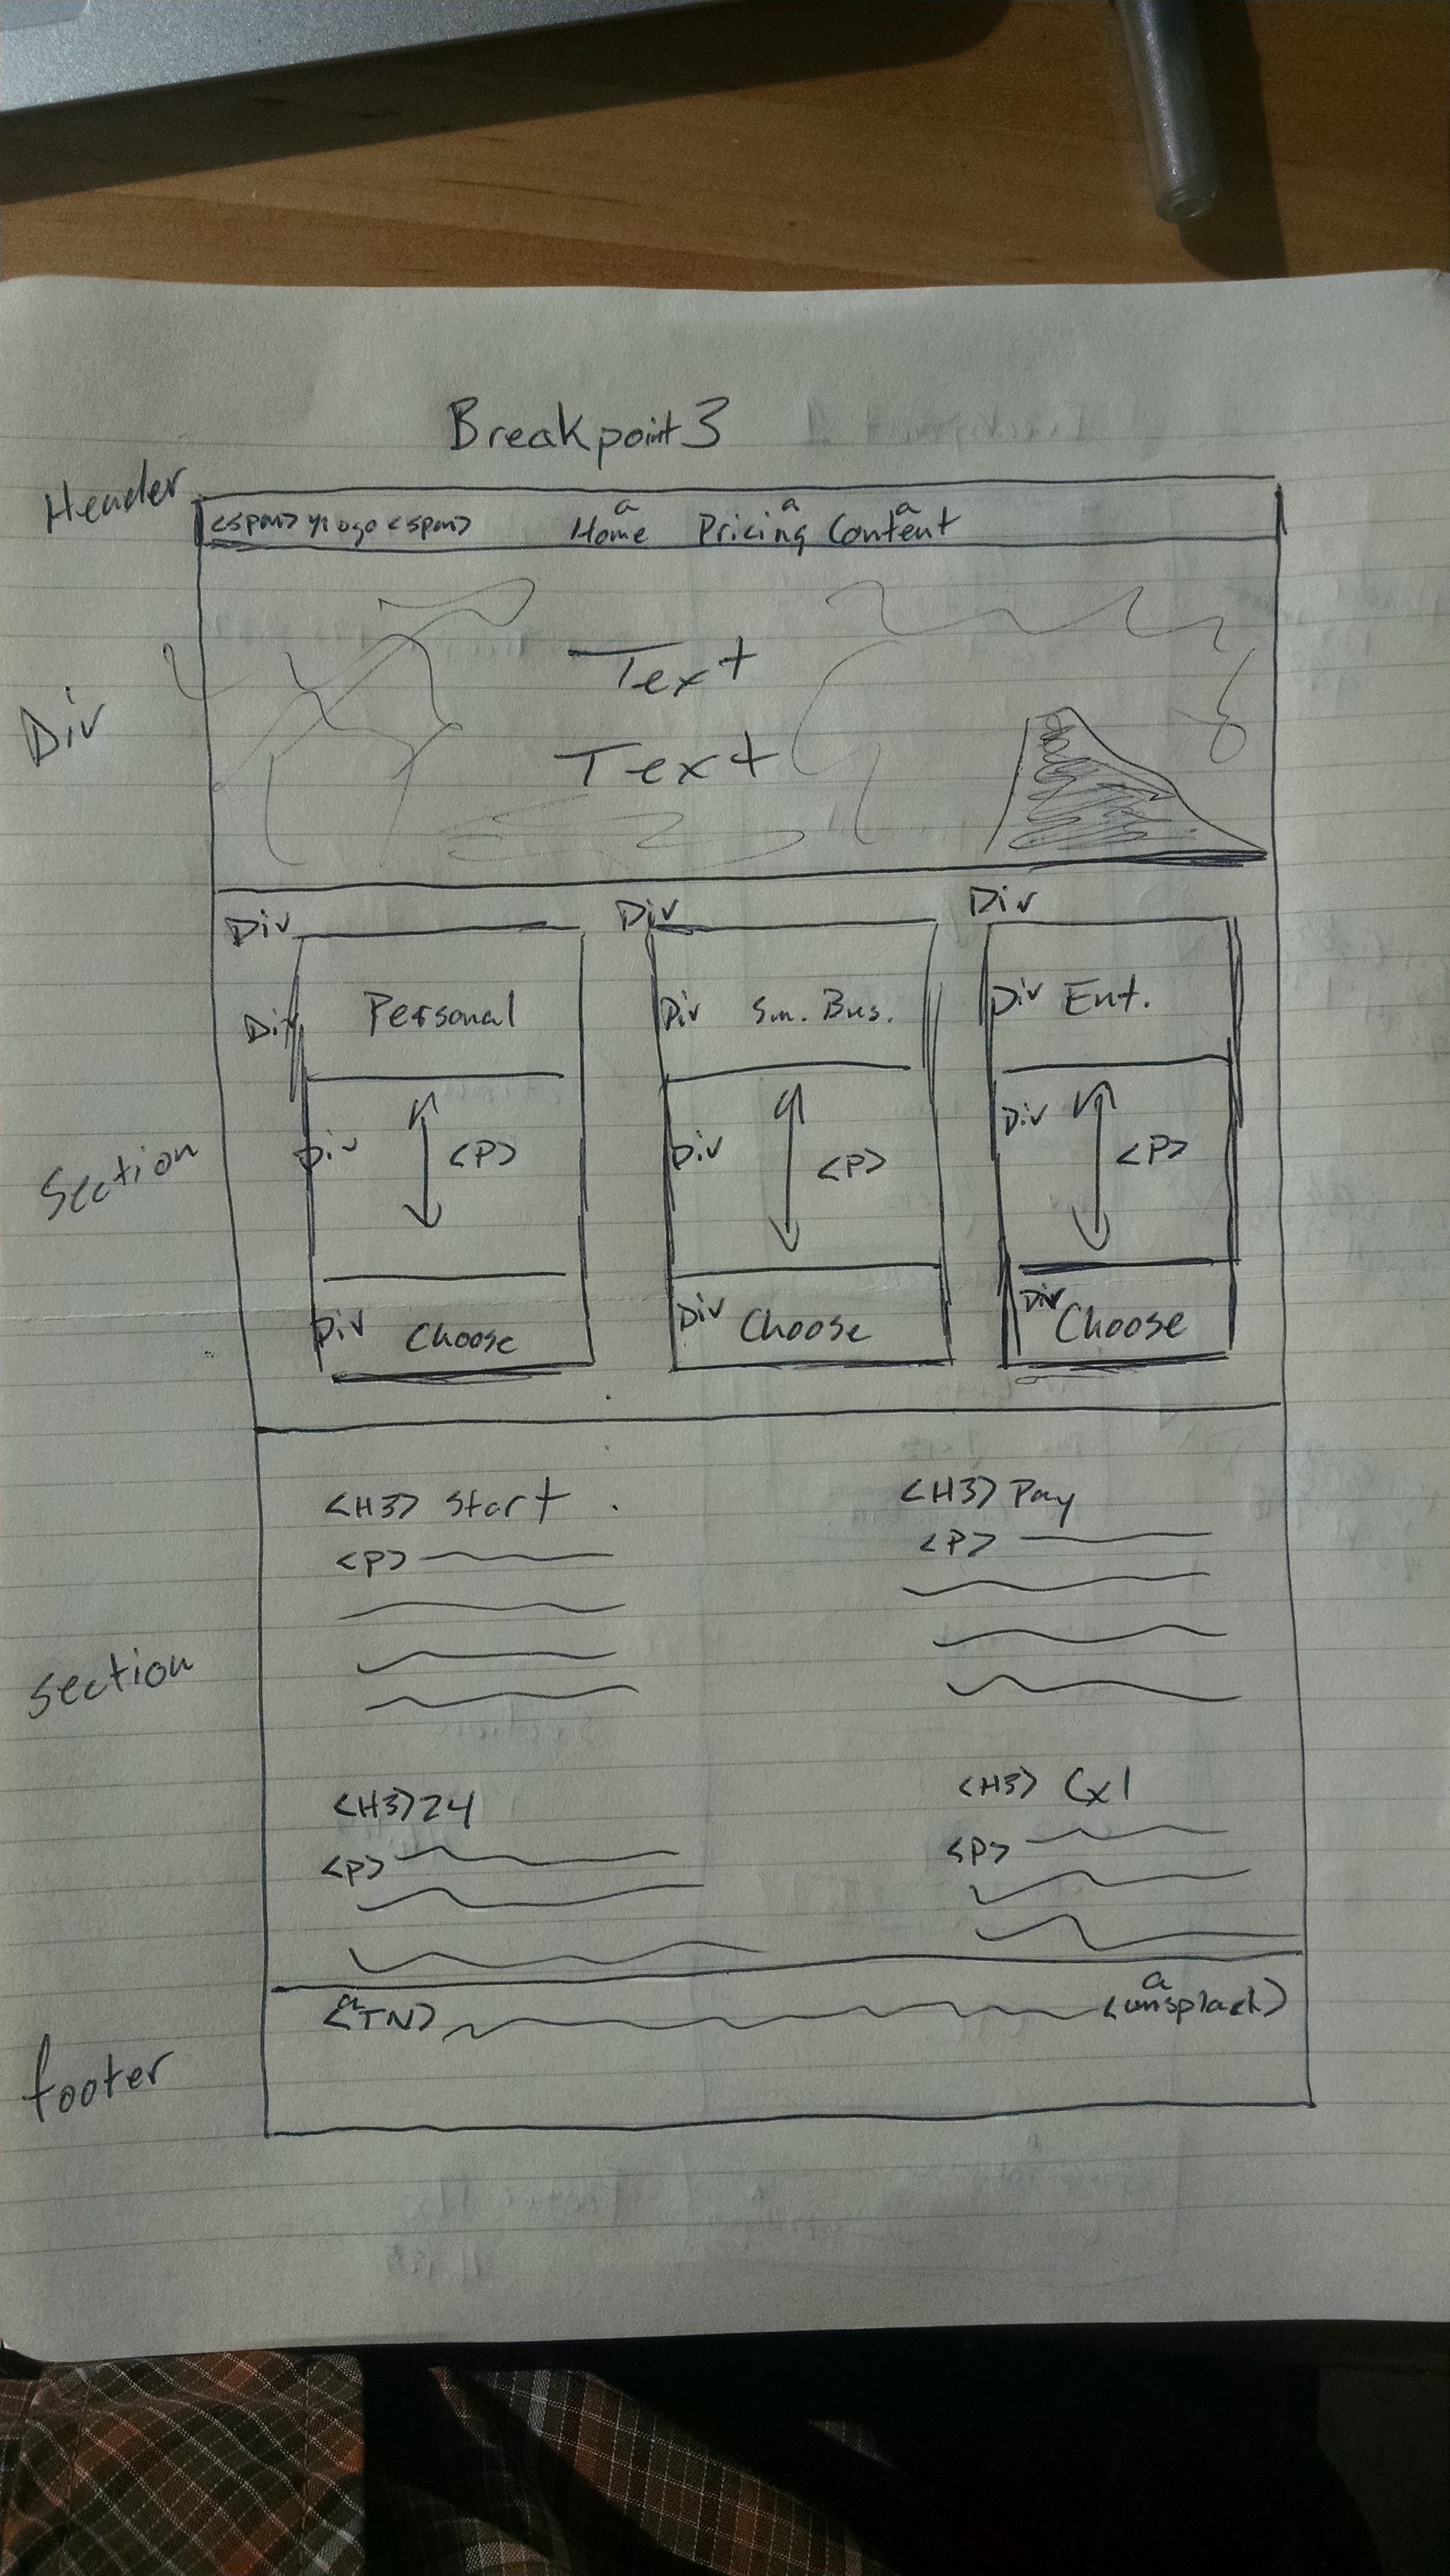 Breakpoint 3
Header
<span> ylogo <span> a Home a Pricing a Content
Div
Text
Text
Section
Div Div Div
Div Personal Div Sm. Bus. Div Ent.
Div <P> Div <P> Div <P>
Div Choose Div Choose Div Choose
section
<H3> Start <H3> Pay
<P> <P>
<H3> 24 <H3> Cxl
<P> <P>
footer
<a TN> <a unsplash>